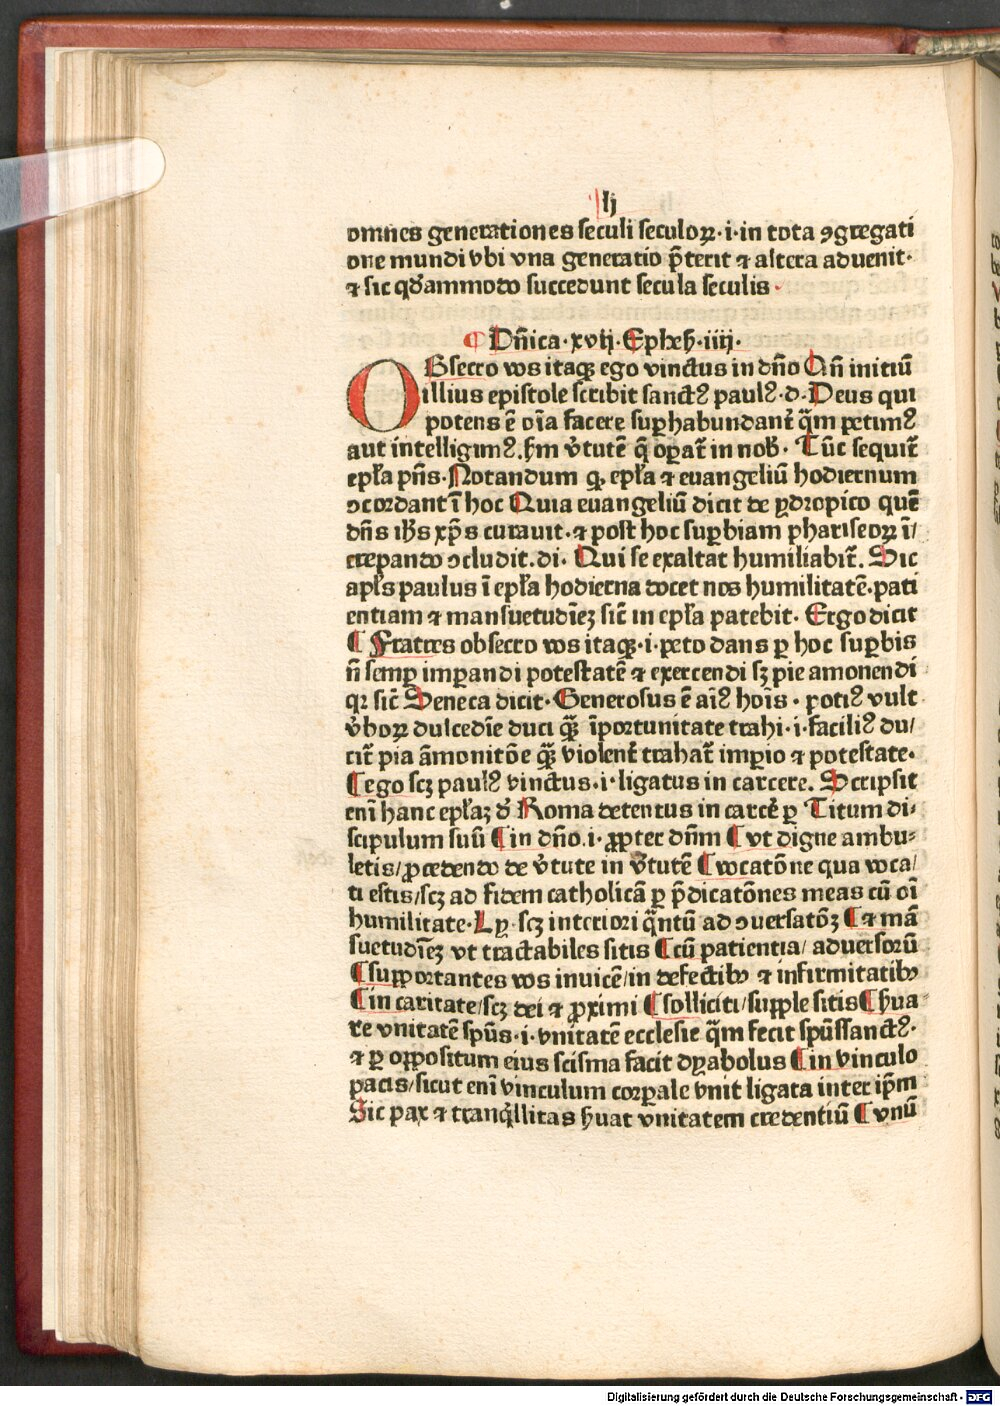 lj
omnes generationes seculi seculoꝝ·i·in tota ꝯgregati
one mundi vbi vna generatio p̄terit ⁊ altera aduenit·
⁊ sic qd̓ammodo succedunt secula seculis·
¶ Dn̄ica·xvij·Ephes̄·iiij·
OBsecro vos itaqꝫ ego vinctus in dn̄o Qn̄ initiū
illius epistole scribit sanctꝰ paulꝰ·d·Deus qui
potens ē oīa facere suꝑhabundanť q̄m petimꝰ
aut intelligimꝰ.ſm v̓tutē q̄ oꝑať in nob̄· Tūc sequiť
epl̄a pn̄s·Notandum ꝙ epl̄a ⁊ euangeliū hodiernum
ꝯcordant ī hoc Quia euangeliū dicit de ydropico quē
dn̄s ih̄s xp̄s curauit·⁊ post hoc suꝑbiam phariseoꝝ ī/
crepando ꝯcludit.di· Qui se exaltat humiliabiť. Sic
apl̄s paulus ī epl̄a hodierna docet nos humilitatē.pati
entiam ⁊ mansuetudīeꝫ sic̄ in epl̄a patebit· Ergo dicit
¶ Fratres obsecro vos itaqꝫ·i·peto dans ꝑ hoc suꝑbis
n̄ semꝑ imꝑandi potestatē ⁊ exercendi sꝫ pie amonendi
qꝛ sic̄ Seneca dicit·Generosus ē aīꝰ hoīs·potiꝰ vult
v̓boꝝ dulcedīe duci q̄ꝫ īportunitate trahi·i·faciliꝰ du/
ciť pia āmonitōe q̄ꝫ violenť trahať imꝑio ⁊ potestate·
¶ ego scꝫ paulꝰ vinctus·i·ligatus in carcere. Scripsit
enī hanc epl̄aꝫ d̓ Roma detentus in carcē ꝑ Titum di⸗
scipulum suū ¶ in dn̄o.i·ꝓpter dn̄m ¶ vt digne ambu⸗
letis/ꝓcedendo de v̓tute in v̓tutē ¶ vocatōne qua voca/
ti estis/scꝫ ad fidem catholicā ꝑ p̄dicatōnes meas cū oī
humilitate·Ly·scꝫ interiori q̄ntū ad ꝯuersatōꝫ ¶ ⁊ mā
suetudīeꝫ vt tractabiles sitis ¶ cū patientia/aduersorū
¶ supportantes vos inuicē/in defectibꝰ ⁊ infirmitatibꝰ
¶ in caritate/scꝫ dei ⁊ ꝓximi ¶ solliciti/supple sitis ¶ ẜua
re vnitatē spūs·i·vnitatē ecclesie q̄m fecit spūssanctꝰ·
⁊ ꝑ oppositum eius scisma facit dyabolus ¶ in vinculo
pacis/sicut enī vinculum corꝑale vnit ligata inter ip̄m
Sic pax ⁊ tranq̇llitas ẜuat vnitatem credentiū ¶ vnū
Digitalisierung gefördert durch die Deutsche Forschungsgemeinschaft - DFG